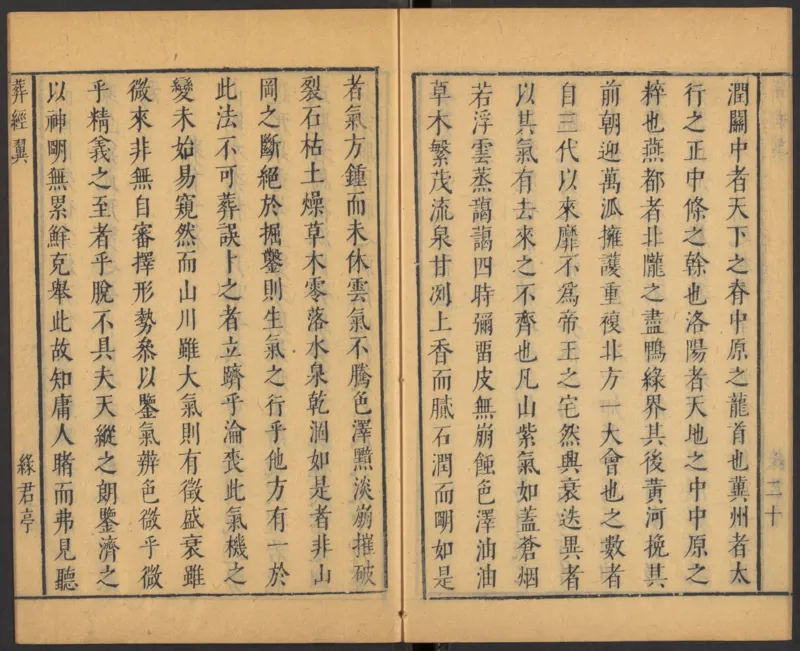 潤關中者天下之脊中原之龍首也冀州者太
行之正中條之榦也洛陽者天地之中中原之
粹也燕都者北隴之盡鴨綠界其後黃河挽其
前朝迎萬泒擁護重複北方一大會也之數者
自三代以來靡不為帝王之宅然興衰迭異者
以其氣有去來之不齊也凡山紫氣如蓋蒼烟
若浮雲蒸藹藹四時彌畱皮無崩蝕色澤油油
草木繁茂流泉甘冽土香而膩石潤而明如是
二十
者氣方鍾而未休雲氣不騰色澤黯淡崩摧破
裂石枯土燥草木零落水泉乾涸如是者非山
岡之斷絕於掘鑿則生氣之行乎他方有一於
此法不可葬誤卜之者立躋乎淪喪此氣機之
變未始易窺然而山川雖大氣則有徵盛衰雖
微來非無自審擇形勢叅以鑒氣辨色微乎微
乎精義之至者乎脫不具夫天縱之朗鑒濟之
以神明無累鮮克舉此故知庸人睹而弗見聽
葬經翼
綠君亭